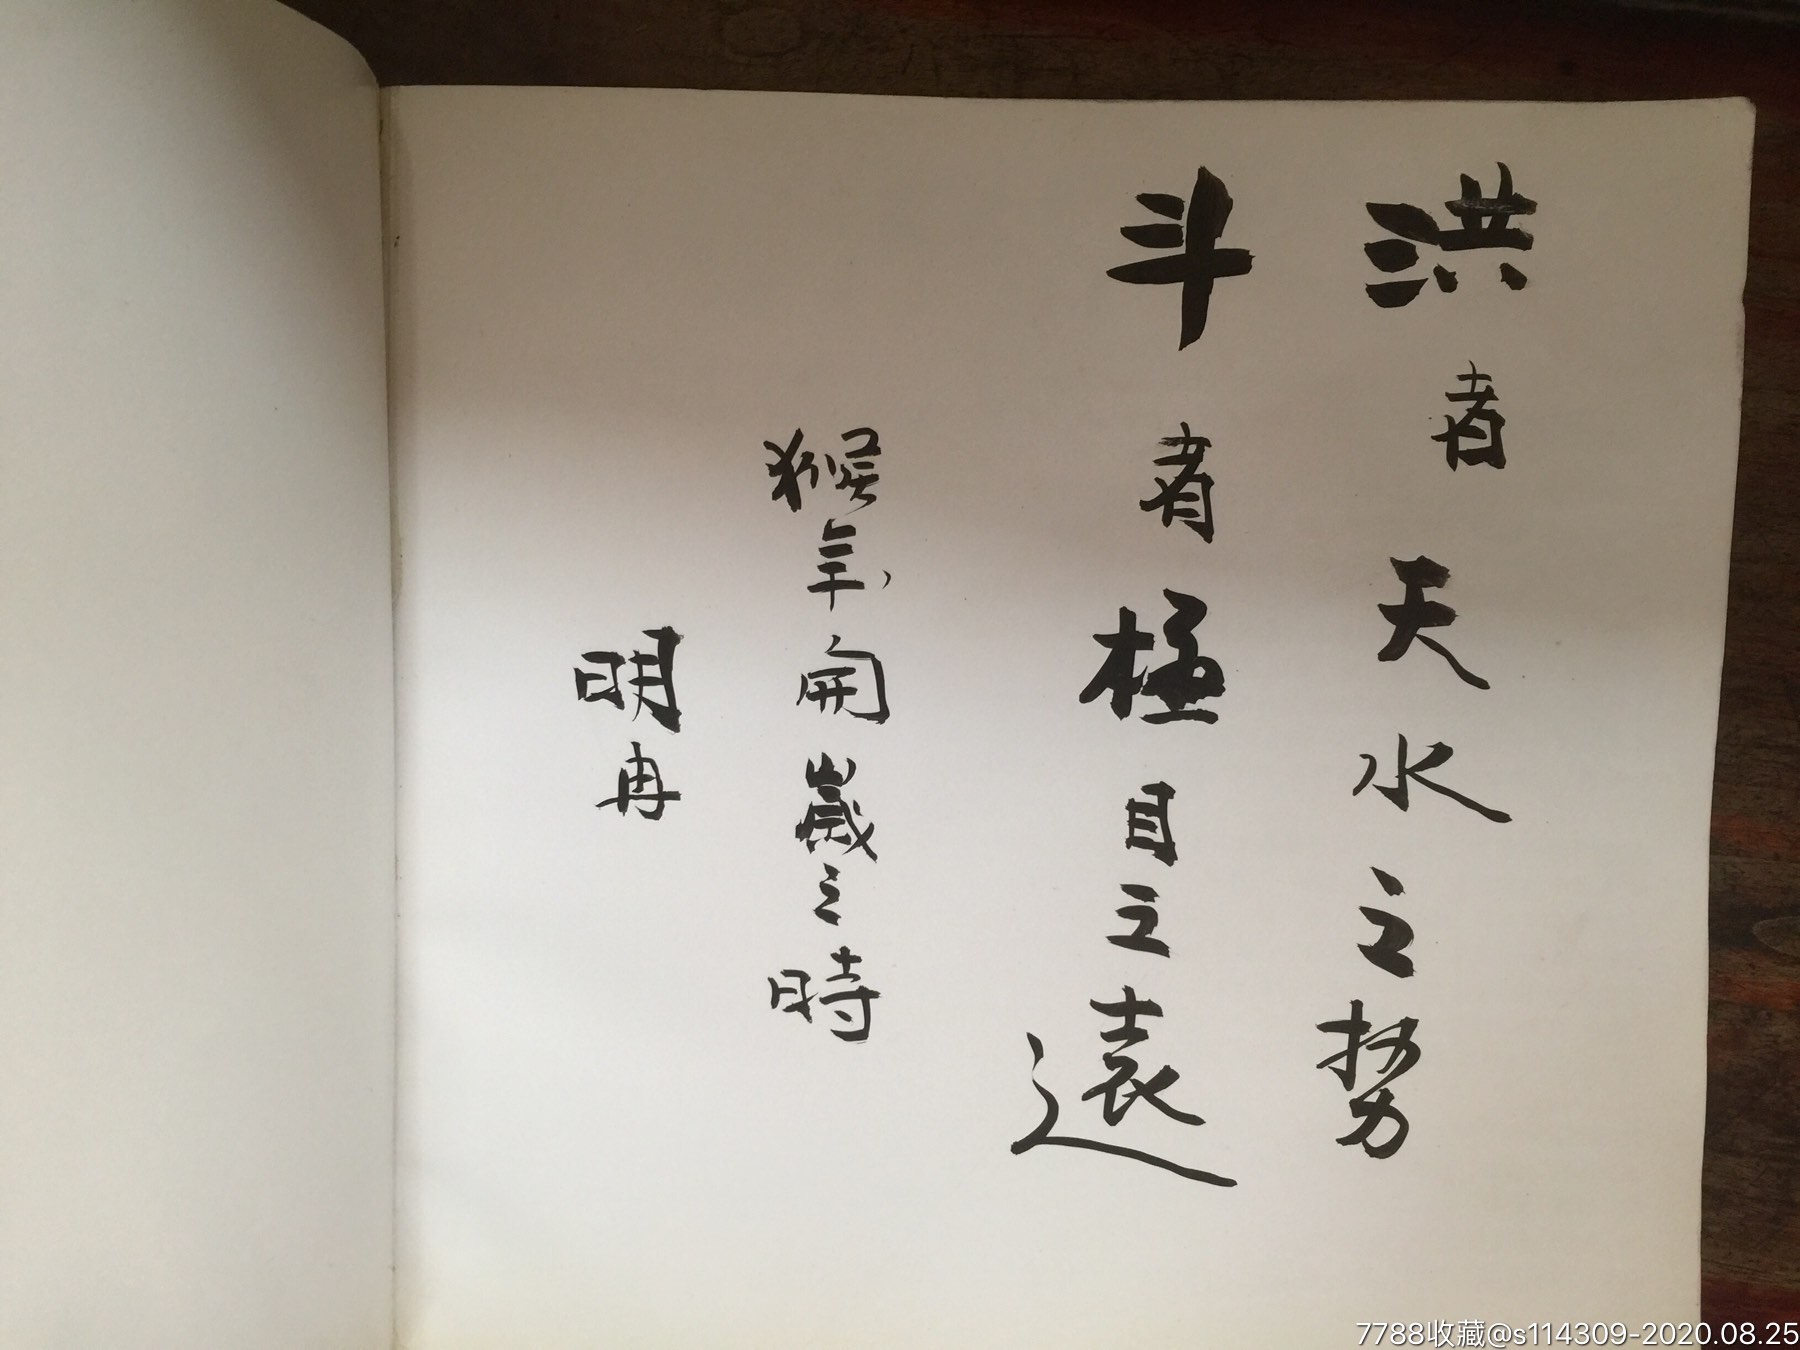 洪者天水之勢
斗者極目之遠
猴年開歲之時
明冉
7788收藏@s114309-2020.08.25